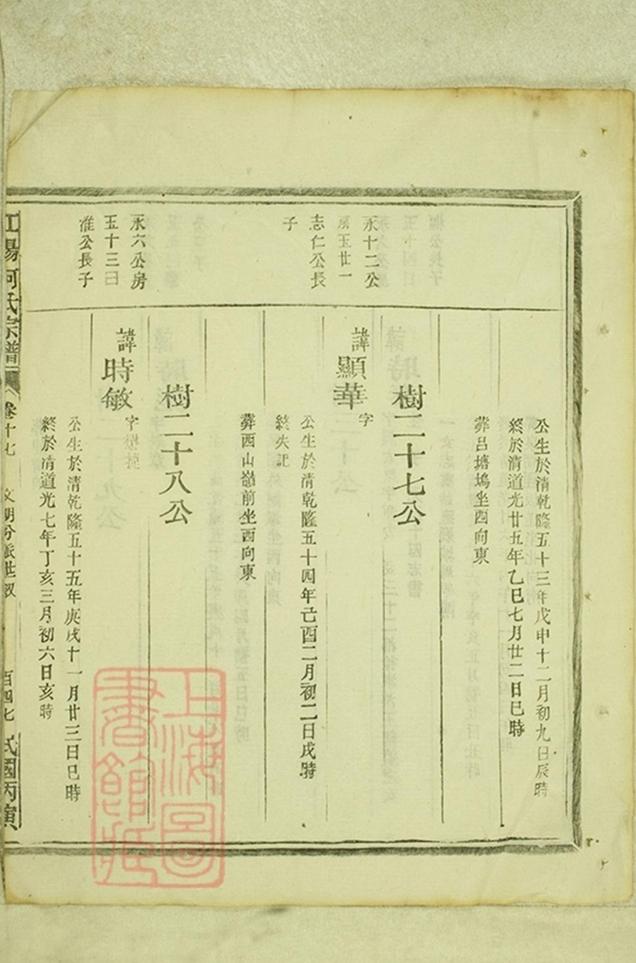 公生於清乾隆五十三年戊申十二月初九日辰時
終於清道光廿五年乙巳七月廿二日巳時
葬呂塘塢坐西向東
樹二十七公
永十二公
玉廿一
志仁公長
子
諱顯華字
公生於清乾隆五十四年己酉二月初二日戌時
終失記
葬西山嶺前坐西向東
樹二十八公
永六公房
玉十三曰
准公長子
諱時敏字
公生於清乾隆五十五年庚戌十一月廿三日巳時
終於清道光七年丁亥三月初六日亥時
陽何氏宗譜
卷十七
文明分派世敘
百四七
民國丙寅
上海圖書館藏